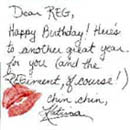 Dear REG,
Happy Birthday! Here's
to another great year
for you (and the
REGiment, of course!)
chin chin,
Katrina